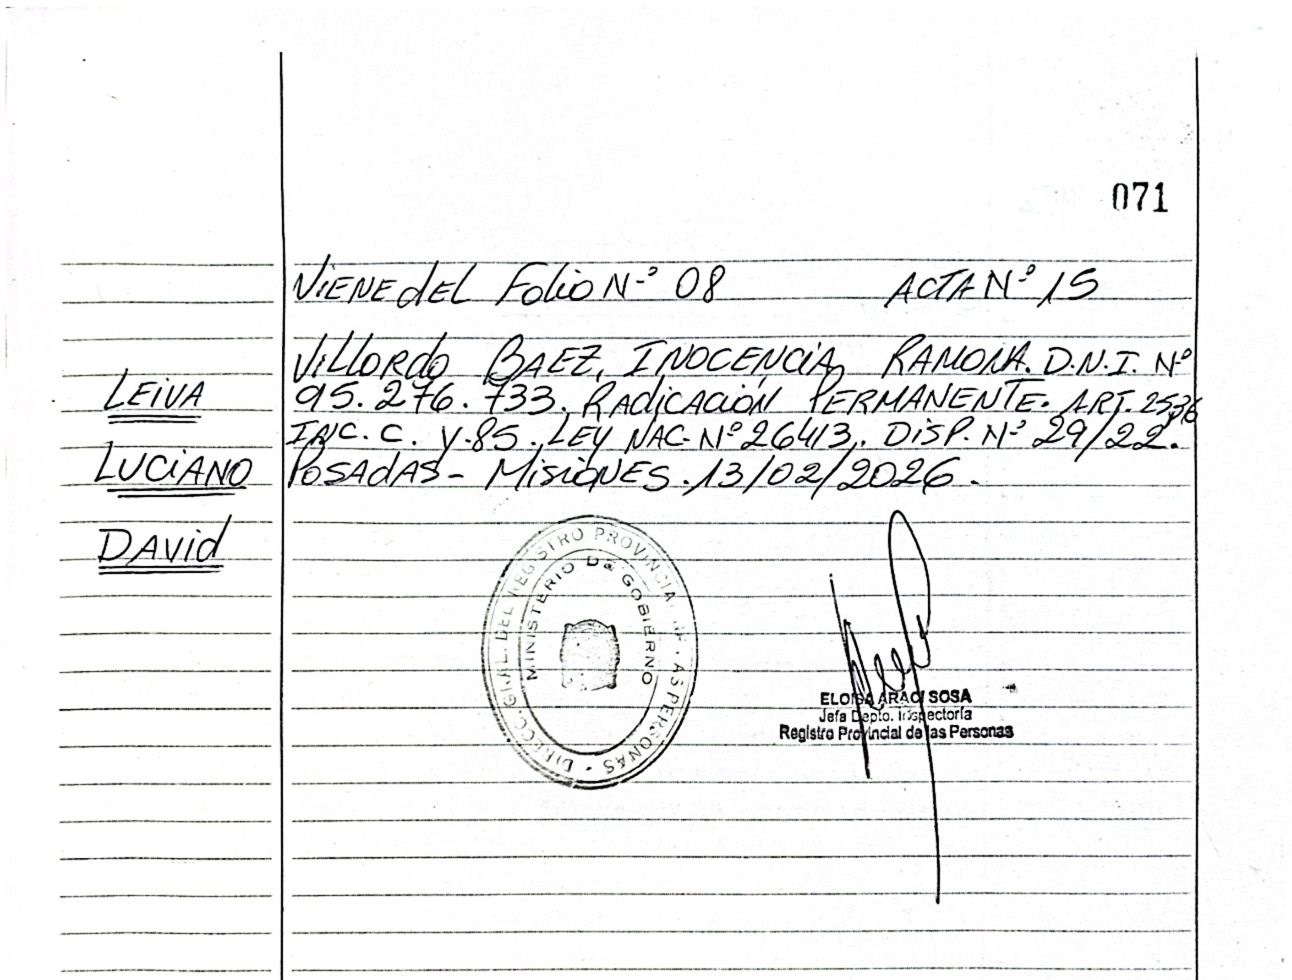 071
VIENE del Folio N-º 08 ACTA Nº 15
Villordo BAEZ, INOCENCIA RAMONA. D.N.I. Nº
LEIVA
95.276.733. RAdicACIÓN PERMANENTE. ART. 25,36
INC. C. Y-85. LEY NAC-Nº 26413. DISP. Nº 29/22.
LUCIANO
POSAdAS - MISIONES. 13/02/2026.
DAVid
DIRECC. GRAL. DEL REGISTRO PROVINCIAL DE LAS PERSONAS
MINISTERIO DE GOBIERNO
ELOISA ARACI SOSA
Jefa Depto. Inspectoría
Registro Provincial de las Personas